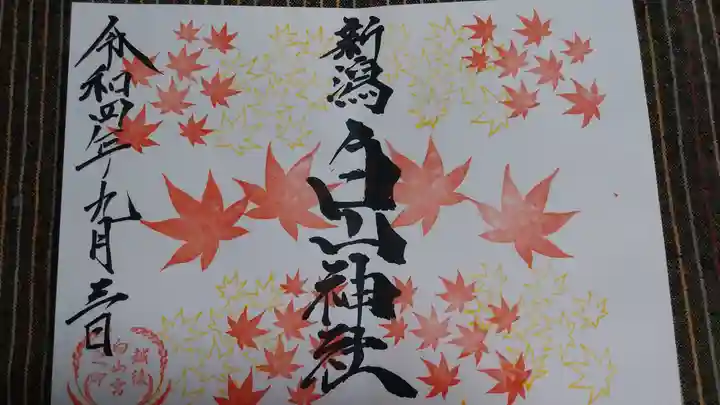 新潟白山神社
令和四年九月三日
越後
白山宮